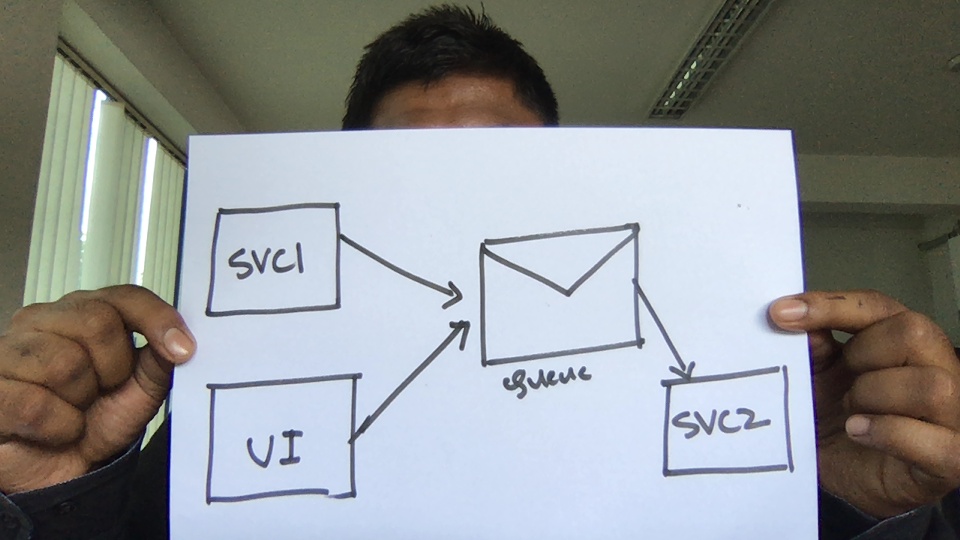 SVC1
UI
queue
SVC2